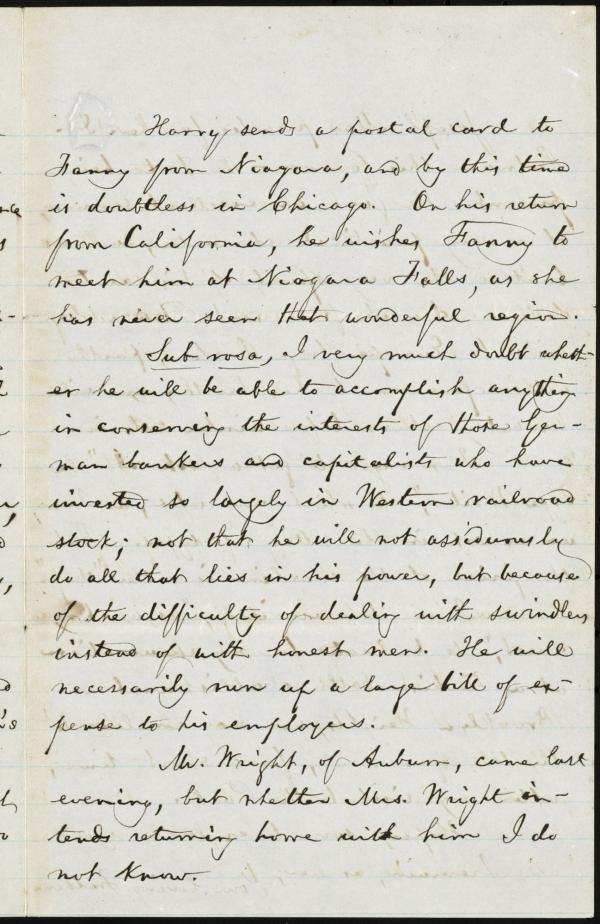 Harry sends a postal card to
Fanny from Niagara, and by this time
is doubtless in Chicago. On his return
from California, he wishes Fanny to
meet him at Niagara Falls, as she
has never seen that wonderful region.
Sub rosa, I very much doubt wheth-
er he will be able to accomplish anything
in conserving the interests of those Ger-
man bankers and capitalists who have
invested so largely in Western railroad
stock; not that he will not assiduously
do all that lies in his power, but because
of the difficulty of dealing with swindlers
instead of with honest men. He will
necessarily run up a large bill of ex-
pense to his employers.
Mr. Wright, of Auburn, came last
evening, but whether Mrs. Wright in-
tends returning home with him I do
not know.